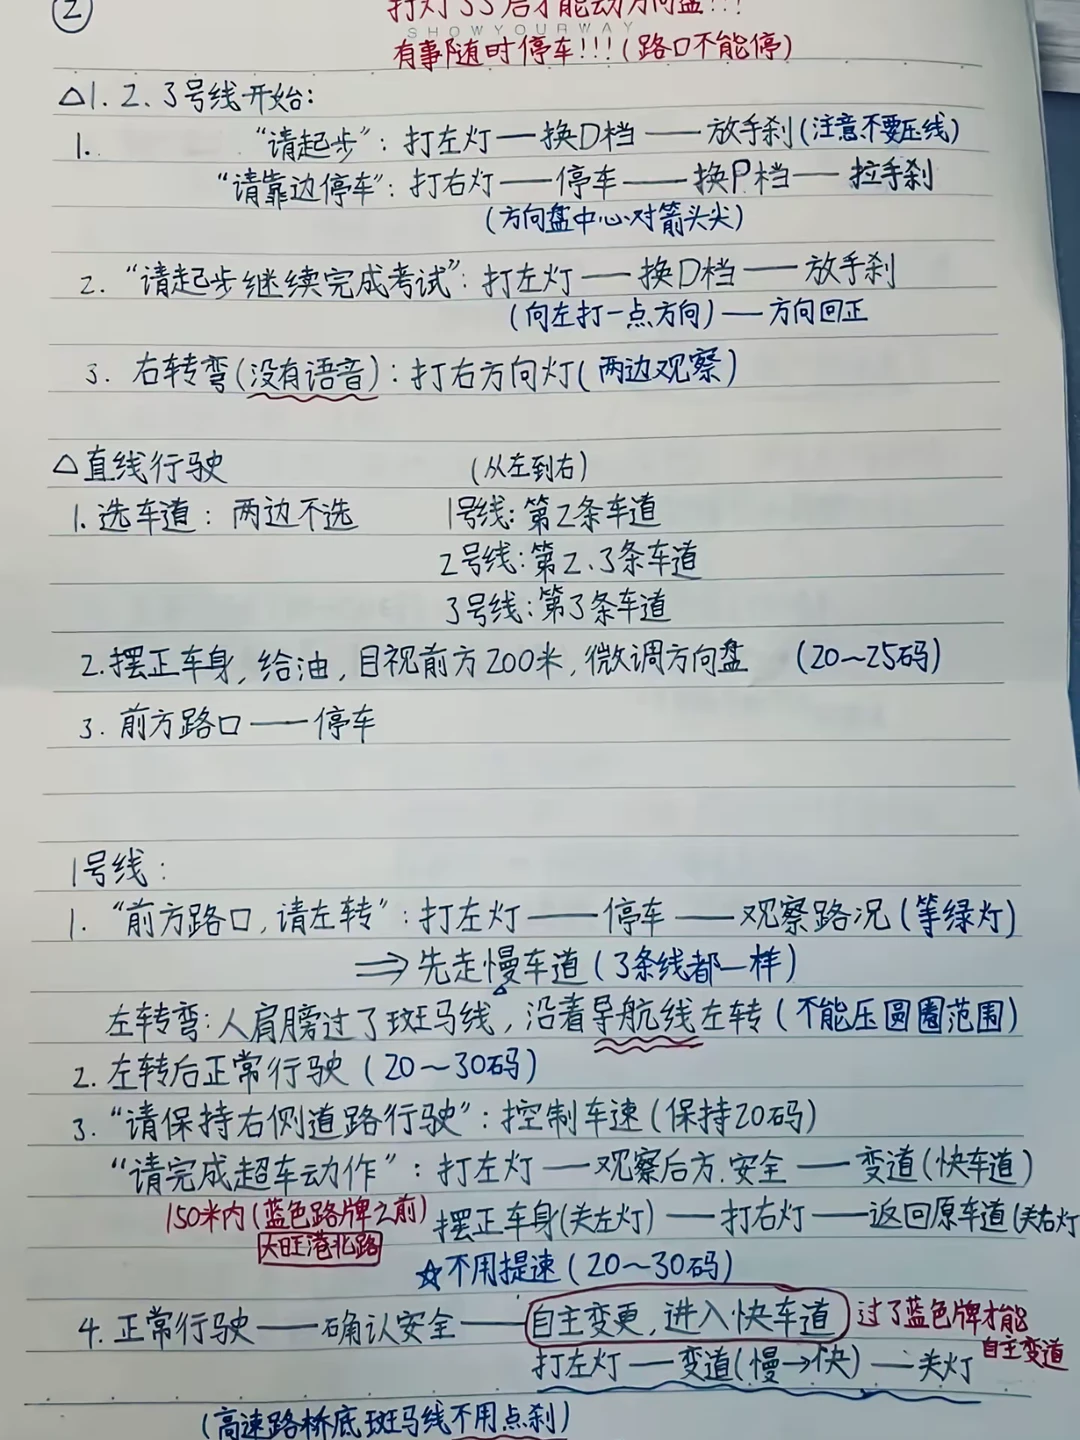 ②
打灯3S后才能动方向盘!!!
SHOWYOURWAY
有事随时停车!!!(路口不能停)
△1.2.3号线开始:
1. “请起步”: 打左灯—换D档——放手刹(注意不要压线)
“请靠边停车”: 打右灯——停车——换P档——拉手刹
(方向盘中心对箭头尖)
2. “请起步继续完成考试”: 打左灯——换D档——放手刹
(向左打一点方向)——方向回正
3. 右转弯(没有语音): 打右方向灯(两边观察)
△直线行驶 (从左到右)
1. 选车道: 两边不选 1号线: 第2条车道
2号线: 第2、3条车道
3号线: 第3条车道
2. 摆正车身, 给油, 目视前方200米, 微调方向盘 (20~25码)
3. 前方路口——停车
1号线:
1. “前方路口, 请左转”: 打左灯——停车——观察路况(等绿灯)
⇒先走慢车道(3条线都一样)
左转弯: 人肩膀过了斑马线, 沿着导航线左转(不能压圆圈范围)
2. 左转后正常行驶(20~30码)
3. “请保持右侧道路行驶”: 控制车速(保持20码)
“请完成超车动作”: 打左灯——观察后方.安全——变道(快车道)
150米内(蓝色路牌之前) 摆正车身(关左灯)——打右灯——返回原车道(关右灯
大旺港北路
☆不用提速(20~30码)
4. 正常行驶——确认安全——自主变更, 进入快车道 过了蓝色牌才能
自主变道
打左灯——变道(慢→快)——关灯
(高速路桥底斑马线不用点刹)